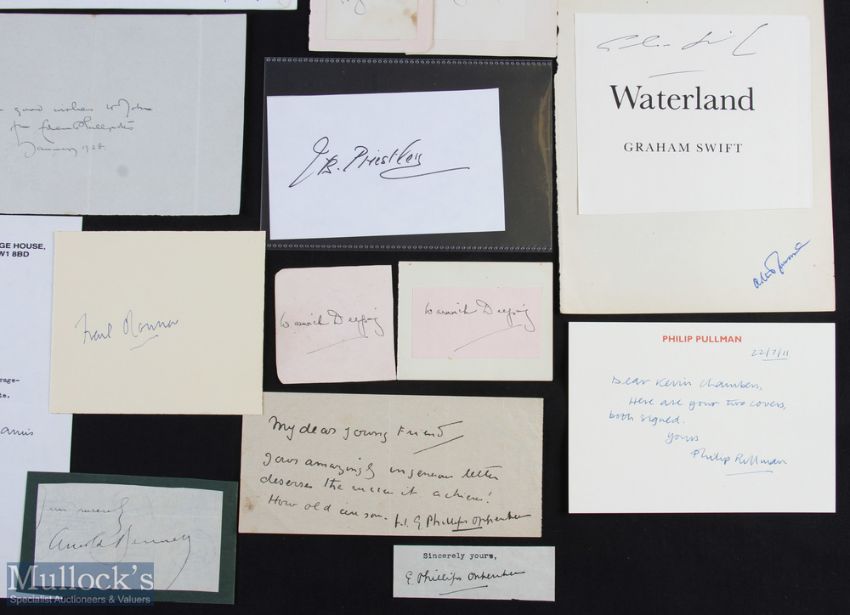 good wishes
from Eden Phillpotts
January 1928
J B. Priestley
Waterland
GRAHAM SWIFT
GE HOUSE,
W1 8BD
Frank O'Connor
Warwick Deeping
Warwick Deeping
PHILIP PULLMAN
22/7/11
Dear Kevin Chambers,
Here are your two covers,
both signed.
Yours
Philip Pullman
My dear young Friend
Your amazingly ingenuous letter
deserves the success it achieves!
How old are you. E Phillips Oppenheim
Yours sincerely
Arnold Bennett
Sincerely yours,
E Phillips Oppenheim
Mullock's
Specialist Auctioneers & Valuers